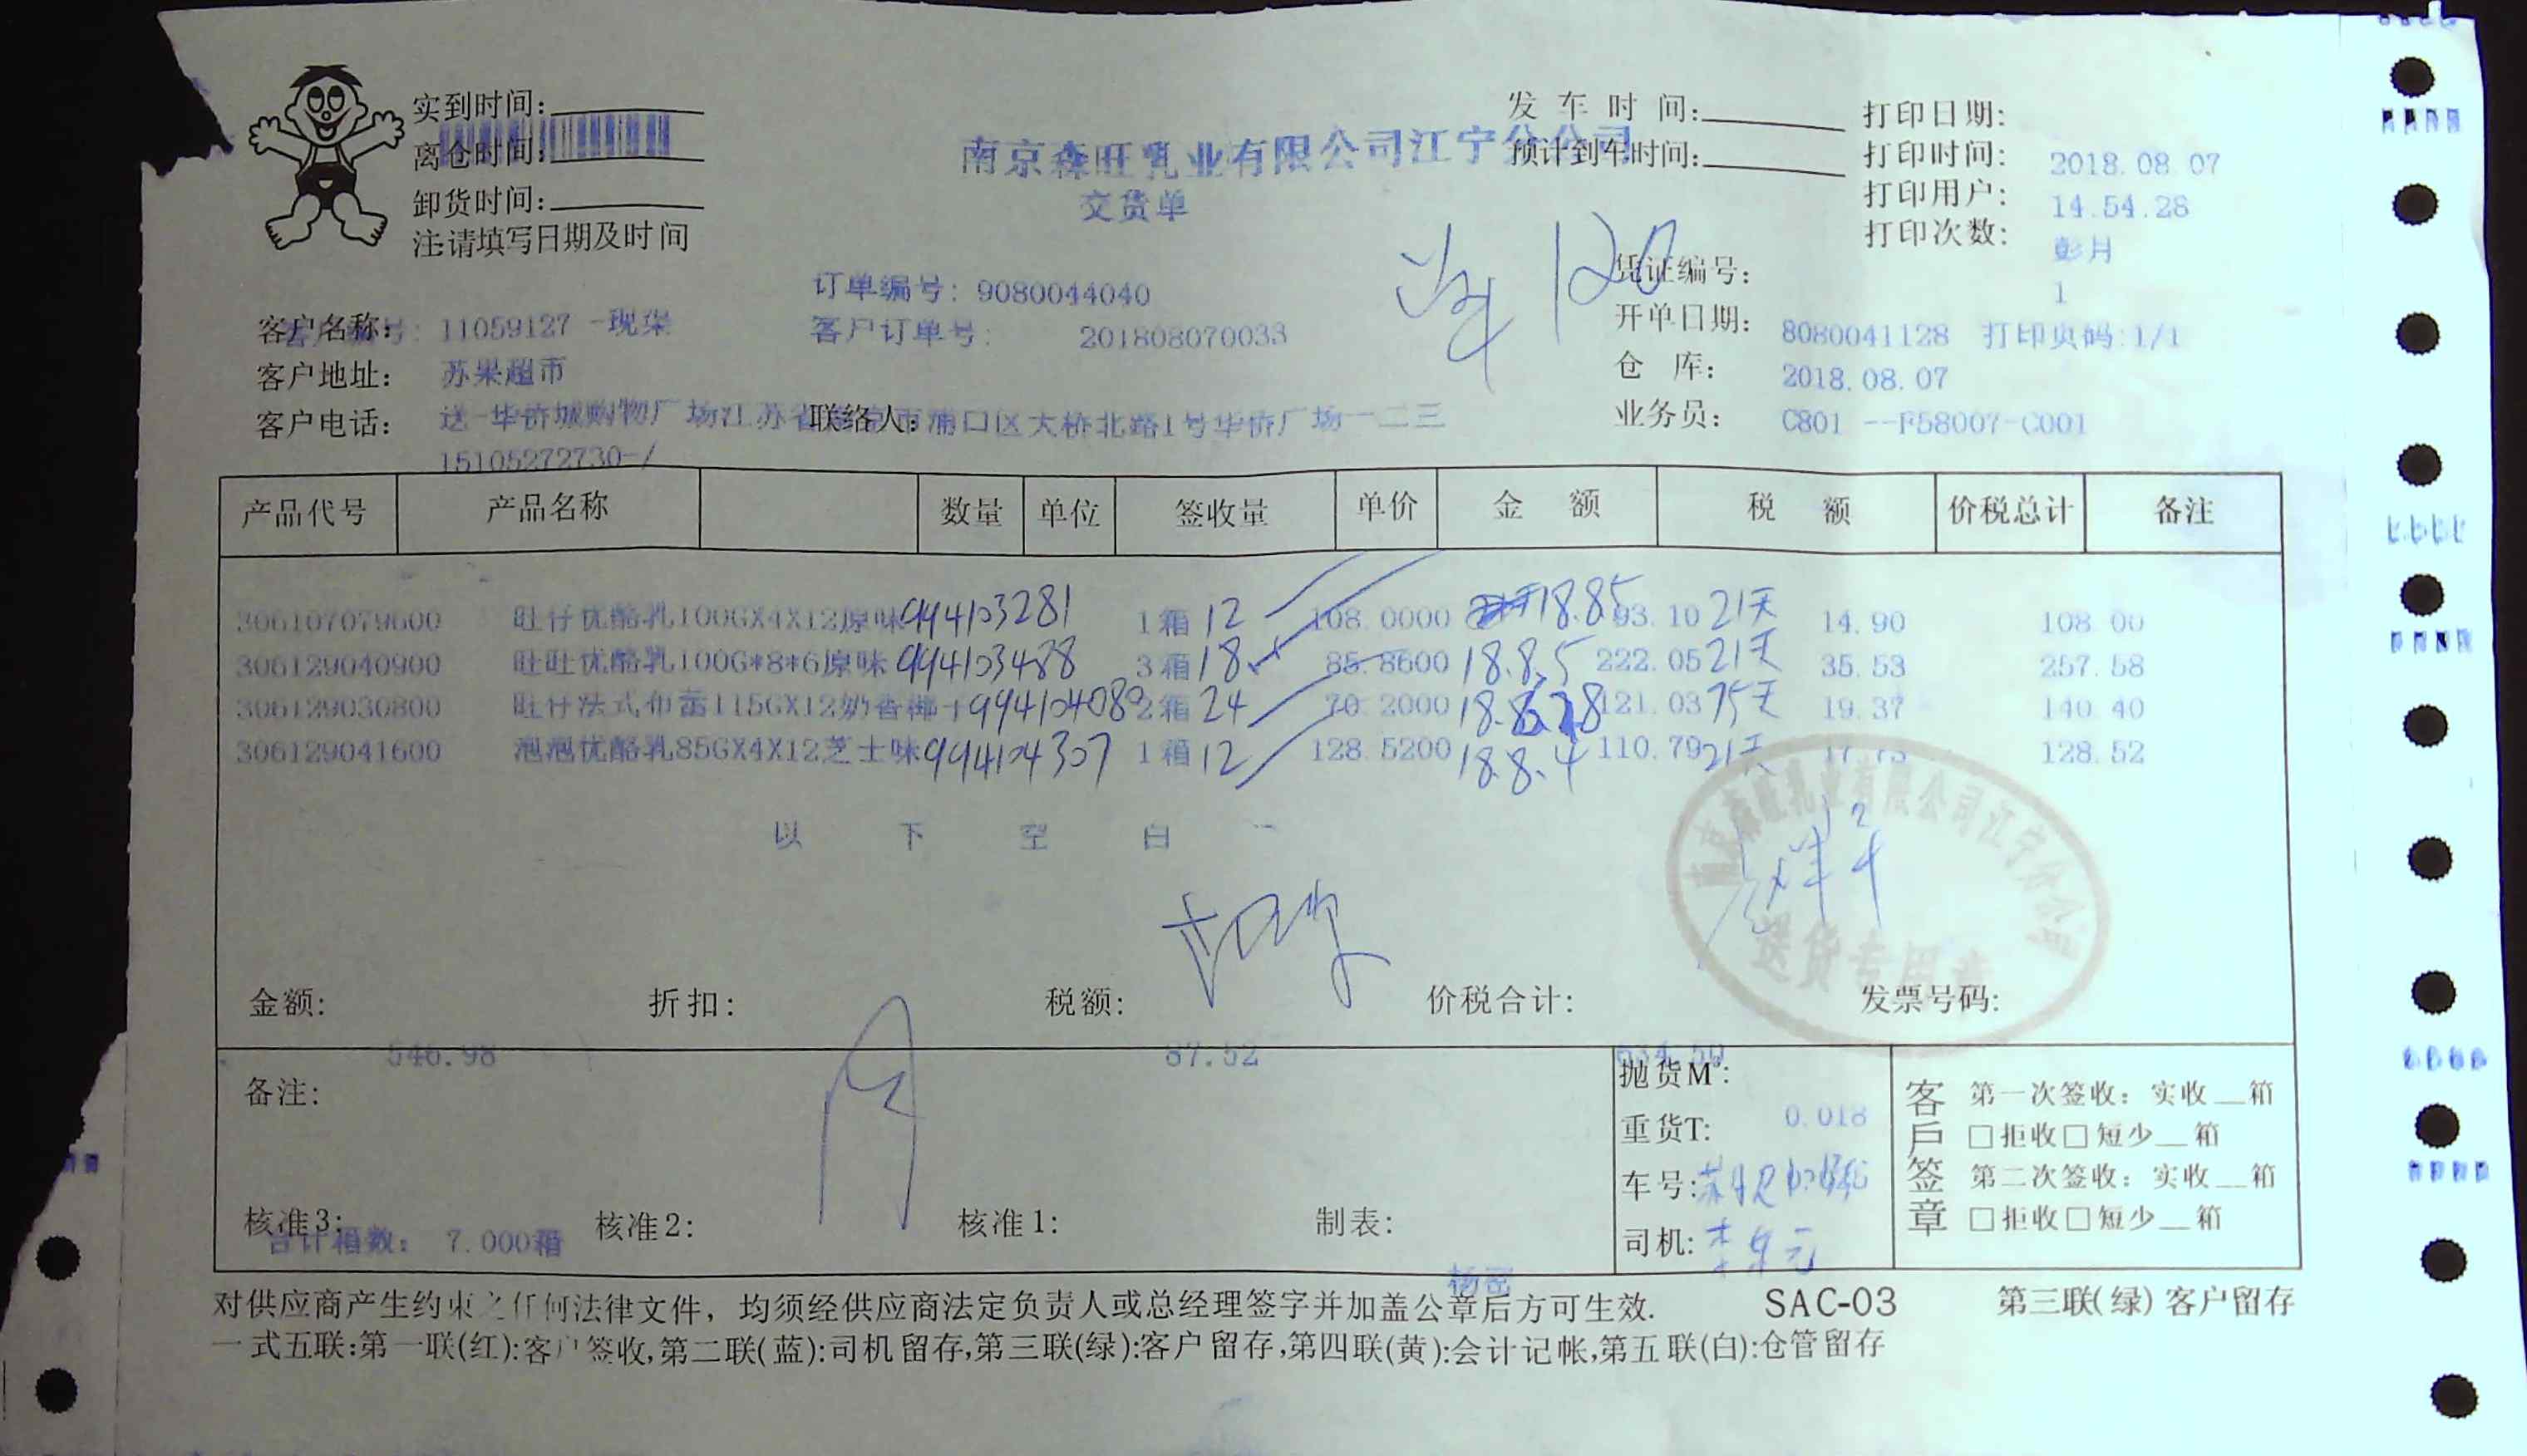 实到时间:
离仓时间:
卸货时间:
注:请填写日期及时间
南京森旺乳业有限公司江宁分公司
交货单
发车时间:
预计到车时间:
打印日期: 2018.08.07
打印时间: 14.54.28
打印用户: 彭月
打印次数: 1
120
订单编号: 9080044040
客户订单号: 201808070033
凭证编号: 8080041128 打印页码:1/1
开单日期: 2018.08.07
仓 库: C801 --F58007-C001
业务员:
客户编号: 11059127 -现渠
客户名称: 苏果超市
客户地址: 送-华侨城购物广场江苏省南京市浦口区大桥北路1号华侨广场一二三
客户电话: 15105272730-/
联络人:
产品代号 产品名称 数量 单位 签收量 单价 金 额 税 额 价税总计 备注
306107079600 旺仔优酪乳100GX4X12原味 994103281 1箱 12 108.0000 18.8.5 93.10 21天 14.90 108.00
306129040900 旺旺优酪乳100G*8*6原味 994103488 3箱 18 85.8600 18.8.5 222.05 21天 35.53 257.58
306129030800 旺仔法式布蕾115GX12奶香椰 2箱 24 70.2000 121.03 75天 19.37 140.40
306129041600 泡泡优酪乳85GX4X12芝士味 994104307 1箱 12 128.5200 18.8.4 110.79 21天 17.73 128.52
以 下 空 白
南京森旺乳业有限公司江宁分公司
送货专用章
金额: 546.98 折扣: 税额: 87.52 价税合计: 634.50 发票号码:
备注:
抛货M³:
重货T: 0.018
车号:
司机:
客戶签章
第一次签收: 实收__箱
□拒收□短少__箱
第二次签收: 实收__箱
□拒收□短少__箱
核准3: 核准2: 核准1: 制表:
合计箱数: 7.000箱
对供应商产生约束之任何法律文件, 均须经供应商法定负责人或总经理签字并加盖公章后方可生效. SAC-03 第三联(绿)客户留存
一式五联:第一联(红):客户签收,第二联(蓝):司机留存,第三联(绿):客户留存,第四联(黄):会计记帐,第五联(白):仓管留存